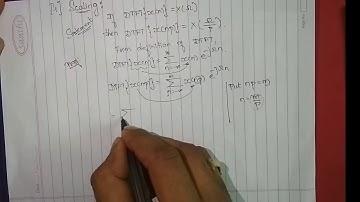 [4] Scaling:
Statement If DTFT{x(n)} = X(Ω)
then DTFT{x(np)} = X(Ω/p)
Proof From definition of DTFT.
DTFT{x(n)} = Σ n=-∞ ∞ x(n) e^-jΩn
DTFT{x(np)} = Σ n=-∞ ∞ x(np) e^-jΩn
Put np = m
n = m/p
= Σ